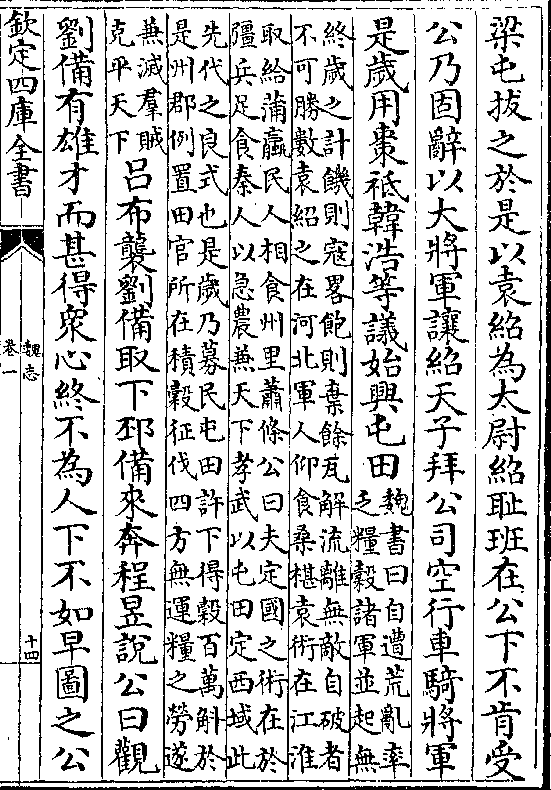 梁屯拔之於是以袁紹為太尉紹恥班在公下不肯受
公乃固辭以大將軍讓紹天子拜公司空行車騎將軍
是歲用棗祗韓浩等議始興屯田
魏書曰自遭荒亂率
乏糧穀諸軍並起無
終歲之計饑則寇畧飽則棄餘瓦解流離無敵自破者
不可勝數袁紹之在河北軍人仰食桑椹袁術在江淮
取給蒲蠃民人相食州里蕭條公曰夫定國之術在於
彊兵足食秦人以急農兼天下孝武以屯田定西域此
先代之良式也是歲乃募民屯田許下得穀百萬斛於
是州郡例置田官所在積穀征伐四方無運糧之勞遂
兼滅羣賊
克平天下
呂布襲劉備取下邳備來奔程昱說公曰觀
劉備有雄才而甚得衆心終不為人下不如早圖之公
欽定四庫全書
魏志
卷一
十四